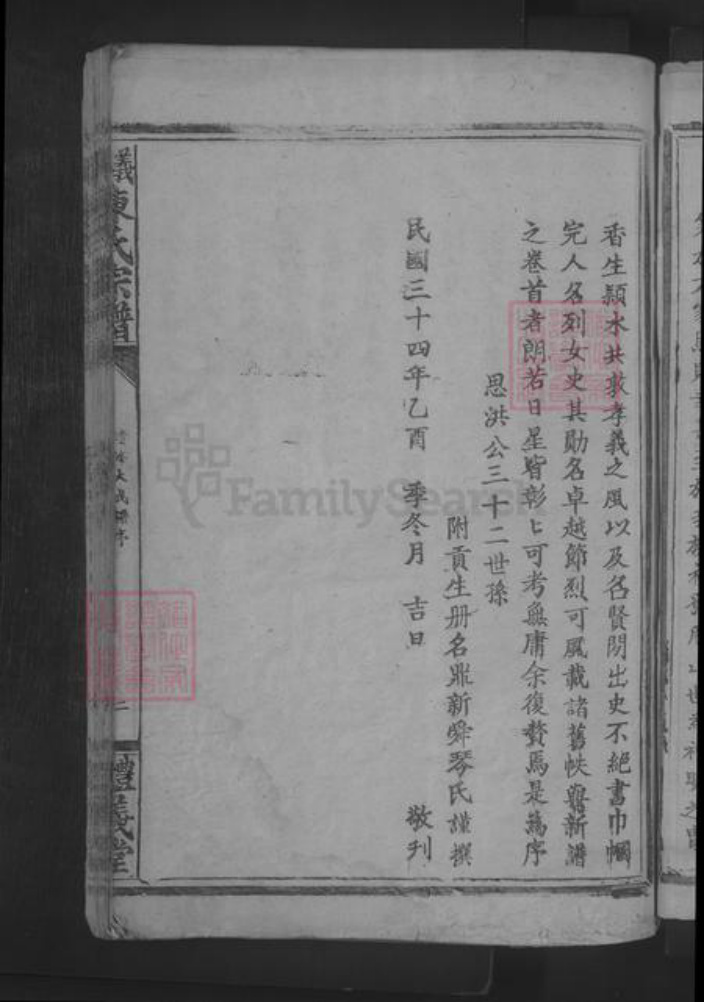 香生潁水共敦孝義之風以及名賢閒出史不絕書巾幗
完人名列女史其勛名卓越節烈可風載諸舊帙與新譜
之卷首者朗若日星皆彰匕可考無庸余復贅焉是為序
思洪公三十二世孫
附貢生册名鼎新舜琴氏謹撰
民國三十四年乙酉 季冬月 吉日 敬刋
義 陳氏宗譜
大成譜序
二
禮義堂
FamilySearch